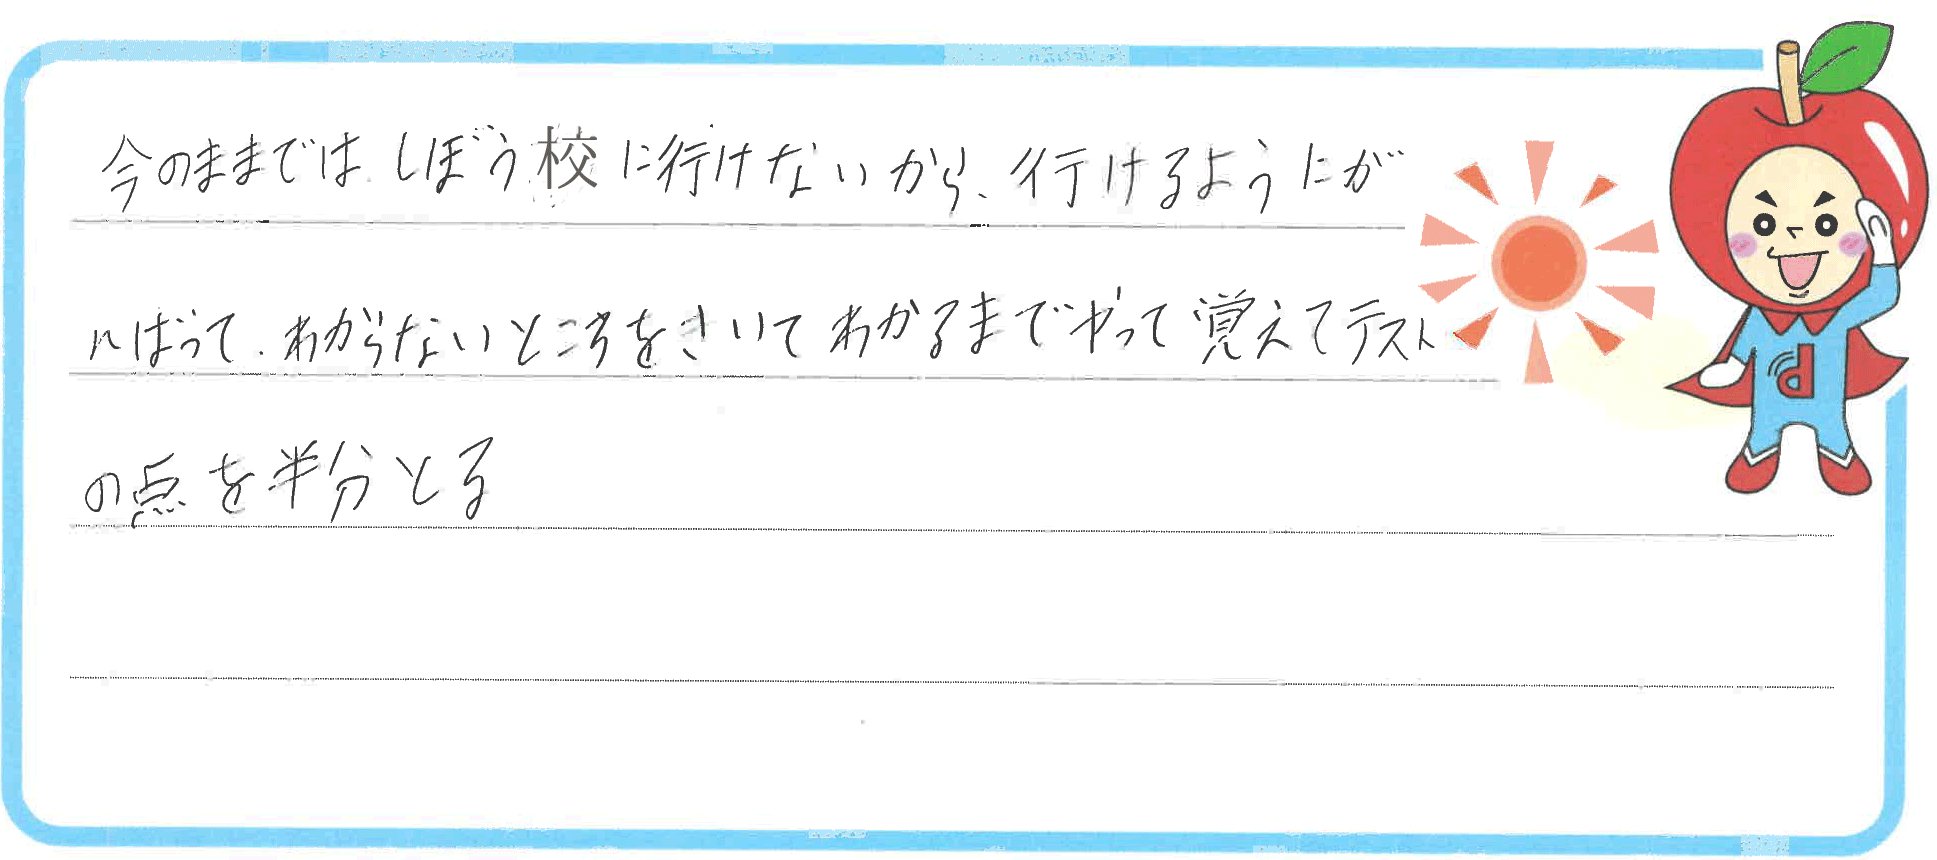 今のままではしぼう校に行けないから、行けるようにが
んばって、わからないところをきいてわかるまでやって覚えてテスト
の点を半分とる